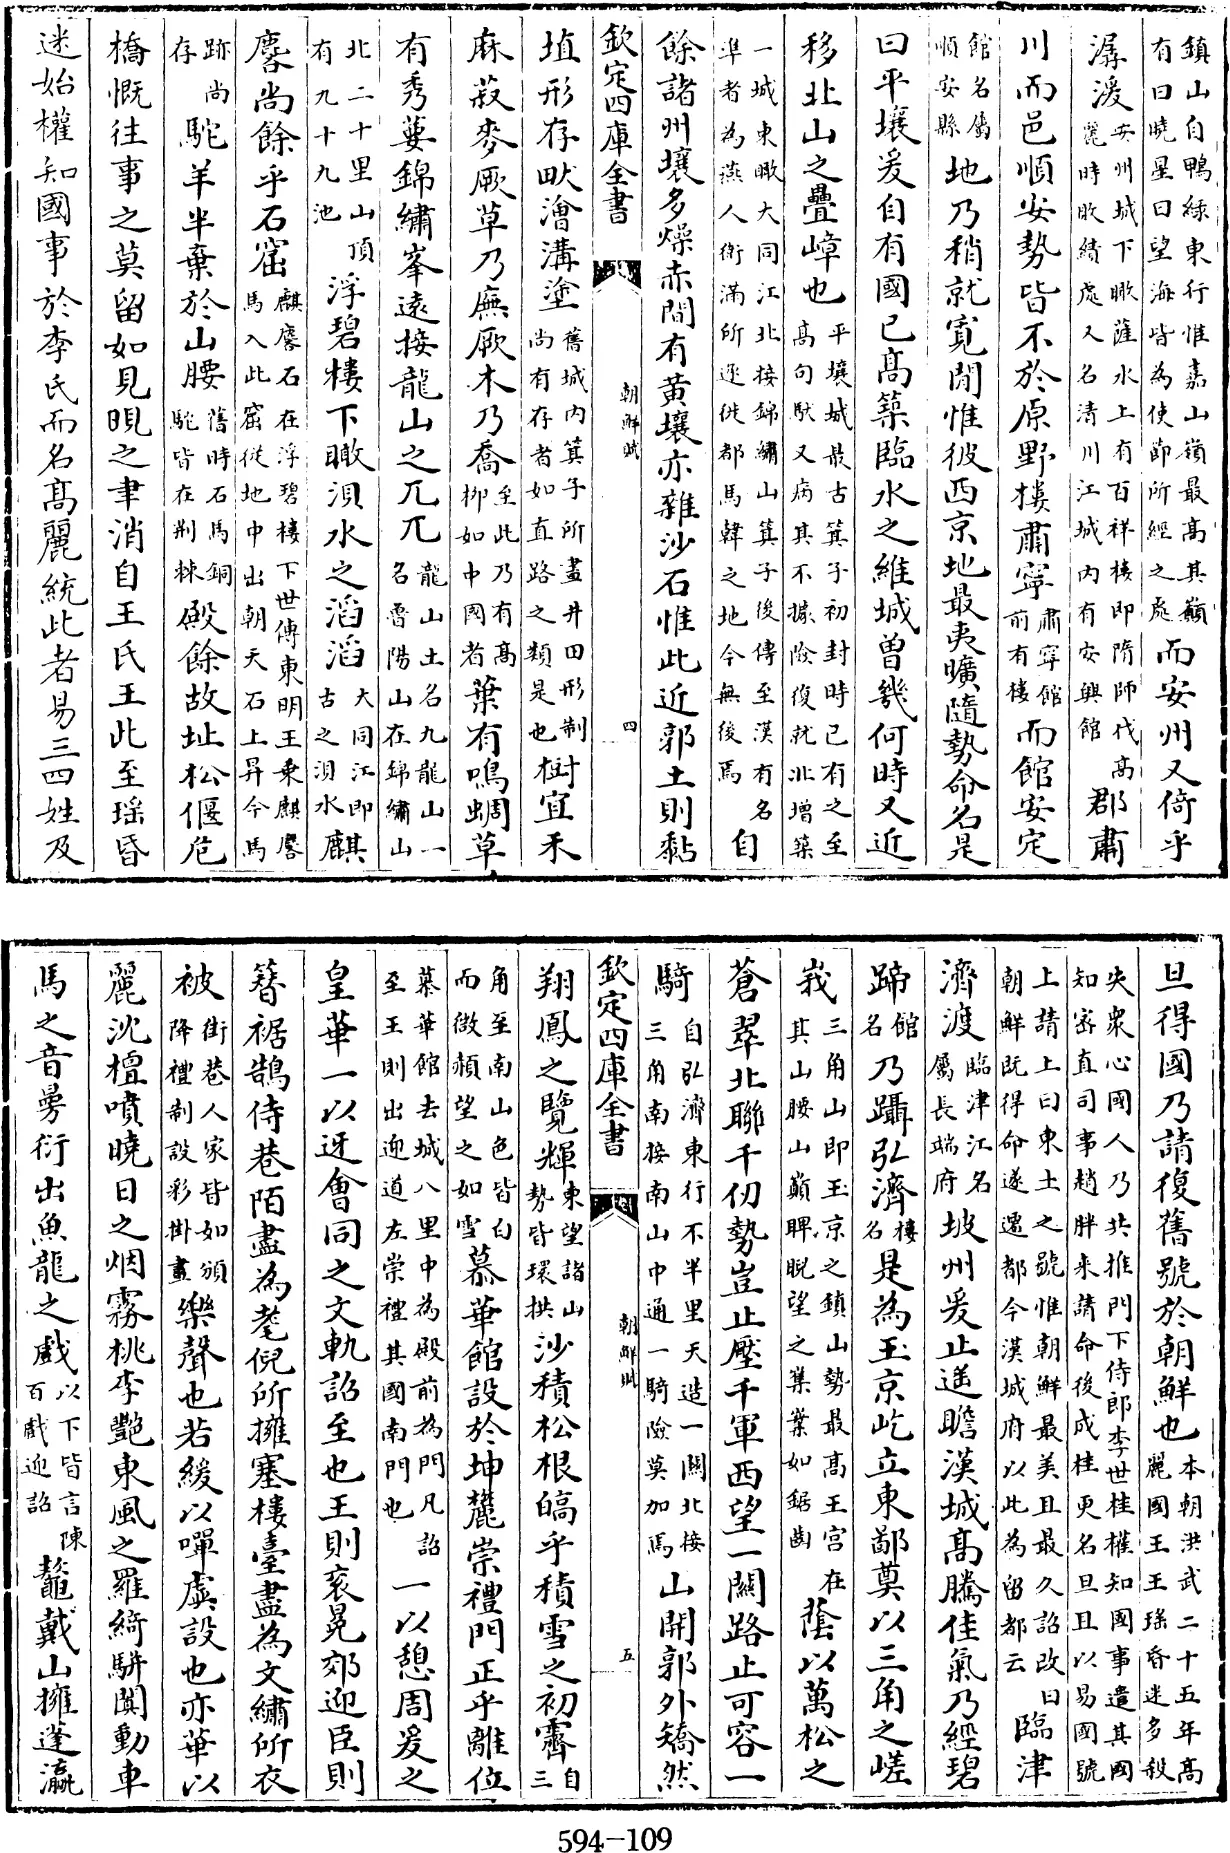 鎮山自鴨緑東行惟嘉山嶺最高其巔有曰曉星曰望海皆為使節所經之處而安州又倚乎
潺湲安州城下瞰薩水上有百祥樓即隋師伐高麗時敗績處又名清川江城内有安興館郡肅
川而邑順安勢皆不於原野樓肅寧肅寧館前有樓而館安定
館名屬順安縣地乃稍就寛閒惟彼西京地最夷曠隨勢命名是
曰平壤爰自有國已髙築臨水之維城曽幾何時又近
移北山之疊嶂也平壤城最古箕子初封時已有之至髙句馱又病其不據險復就北増築
一城東瞰大同江北接錦繡山箕子後傳至漢有名凖者為燕人衛滿所逐徙都馬韓之地今無後焉自
餘諸州壤多燥赤間有黄壤亦雜沙石惟此近郭土則黏
欽定四庫全書 朝鮮賦 四
埴形存畎澮溝塗舊城内箕子所畫井田形制尚有存者如直路之類是也樹宜禾
麻菽麥厥草乃廡厥木乃喬至此乃有高柳如中國者葉有鳴蜩草
有秀葽錦繡峯遠接龍山之兀兀龍山土名九龍山一名魯陽山在錦繡山
北二十里山頂有九十九池浮碧樓下瞰浿水之滔滔大同江即古之浿水麒
麐尚餘乎石窟麒麐石在浮碧樓下世傳東明王乗麒麐馬入此窟從地中出朝天石上昇今馬
跡尚存駝羊半棄於山腰舊時石馬銅駝皆在荆棘殿餘故址松偃危
橋慨往事之莫留如見晛之聿消自王氏王此至瑶昏
迷始權知國事於李氏而名髙麗統此者易三四姓及
旦得國乃請復舊號於朝鮮也本朝洪武二十五年高麗國王王瑶昏迷多殺
失衆心國人乃共推門下侍郎李世桂權知國事遣其國知宻直司事趙胖来請命後成桂更名旦且以易國號
上請上曰東土之號惟朝鮮最美且最久詔改曰朝鮮既得命遂遷都今漢城府以此為留都云臨津
濟渡臨津江名屬長端府坡州爰止遥瞻漢城髙騰佳氣乃經碧
蹄館名乃躡弘濟樓名是為玉京屹立東鄙奠以三角之嵯
峩三角山即玉京之鎮山勢最高王宫在其山腰山巔睥睨望之業業如鋸齒蔭以萬松之
蒼翠北聯千仞勢豈止壓千軍西望一闗路止可容一
騎自弘濟東行不半里天造一闗北接三角南接南山中通一騎險莫加焉山開郭外矯然
欽定四庫全書 朝鮮賦 五
翔鳳之覽輝東望諸山勢皆環拱沙積松根皜乎積雪之初霽自三
角至南山色皆白而微頳望之如雪慕華館設於坤麓崇禮門正乎離位
慕華館去城八里中為殿前為門凡詔至王則出迎道左崇禮其國南門也一以憩周爰之
皇華一以迓會同之文軌詔至也王則衮冕郊迎臣則
簪裾鵠侍巷陌盡為耄倪所擁塞樓臺盡為文繡所衣
被街巷人家皆如頒降禮制設彩掛畫樂聲也若緩以嘽虡設也亦華以
麗沈檀噴曉日之烟霧桃李艷東風之羅綺駢闐動車
馬之音曼衍出魚龍之戲以下皆言陳百戲迎詔鼇戴山擁蓬瀛
594-109